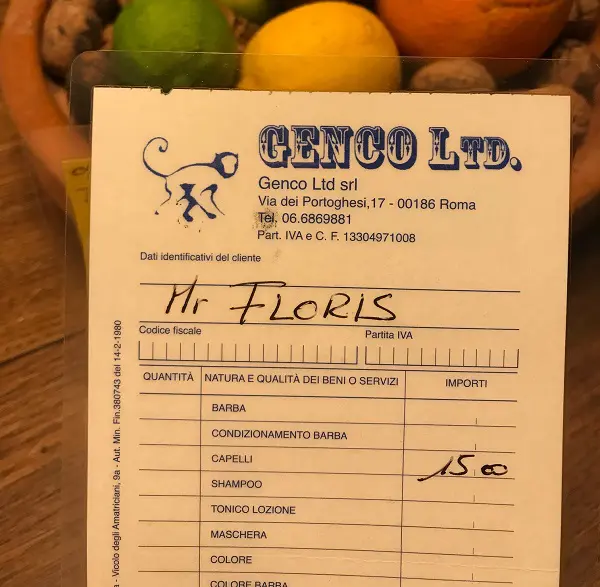 GENCO LTD.
Genco Ltd srl
Via dei Portoghesi,17 - 00186 Roma
Tel. 06.6869881
Part. IVA e C. F. 13304971008
Dati identificativi del cliente
Mr FLORIS
Codice fiscale
Partita IVA
QUANTITÀ NATURA E QUALITÀ DEI BENI O SERVIZI IMPORTI
BARBA
CONDIZIONAMENTO BARBA
CAPELLI 15 00
SHAMPOO
TONICO LOZIONE
MASCHERA
COLORE
COLORE BARBA
- Vicolo degli Amatriciani, 9a - Aut. Min. Fin.380743 del 14-2-1980